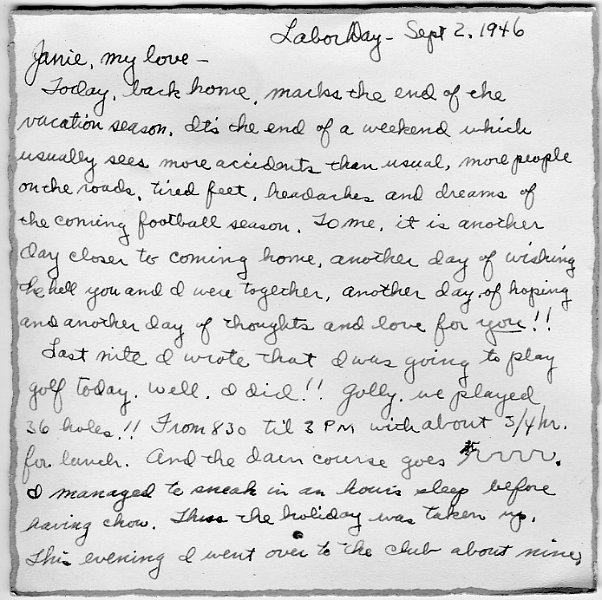 Labor Day - Sept 2, 1946
Janie, my love -
Today, back home, marks the end of the
vacation season. It's the end of a weekend which
usually sees more accidents than usual, more people
on the roads, tired feet, headaches and dreams of
the coming football season. To me, it is another
day closer to coming home, another day of wishing
the hell you and I were together, another day of hoping
and another day of thoughts and love for you!!
Last nite I wrote that I was going to play
golf today. Well, I did!! Golly, we played
36 holes!! From 830 til 3 PM with about 3/4 hr.
for lunch. And the darn course goes
I managed to sneak in an hours sleep before
having chow. Thus the holiday was taken up.
This evening I went over to the club about nine,